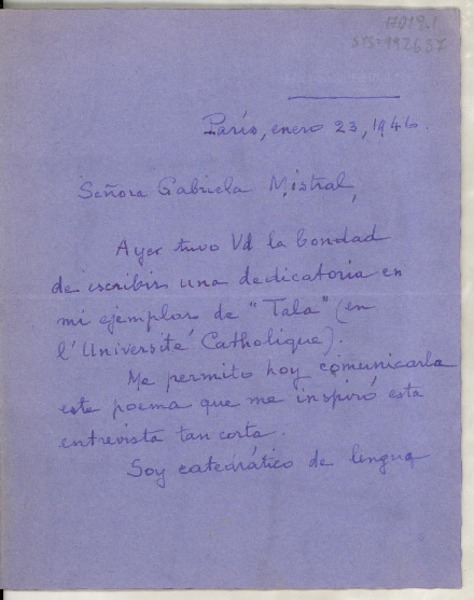 París, enero 23, 1946.
Señora Gabriela Mistral,
Ayer tuvo Vd la bondad
de escribir una dedicatoria en
mi ejemplar de "Tala" (en
l'Université Catholique).
Me permito hoy comunicarla
este poema que me inspiró esta
entrevista tan corta.
Soy catedrático de lengua